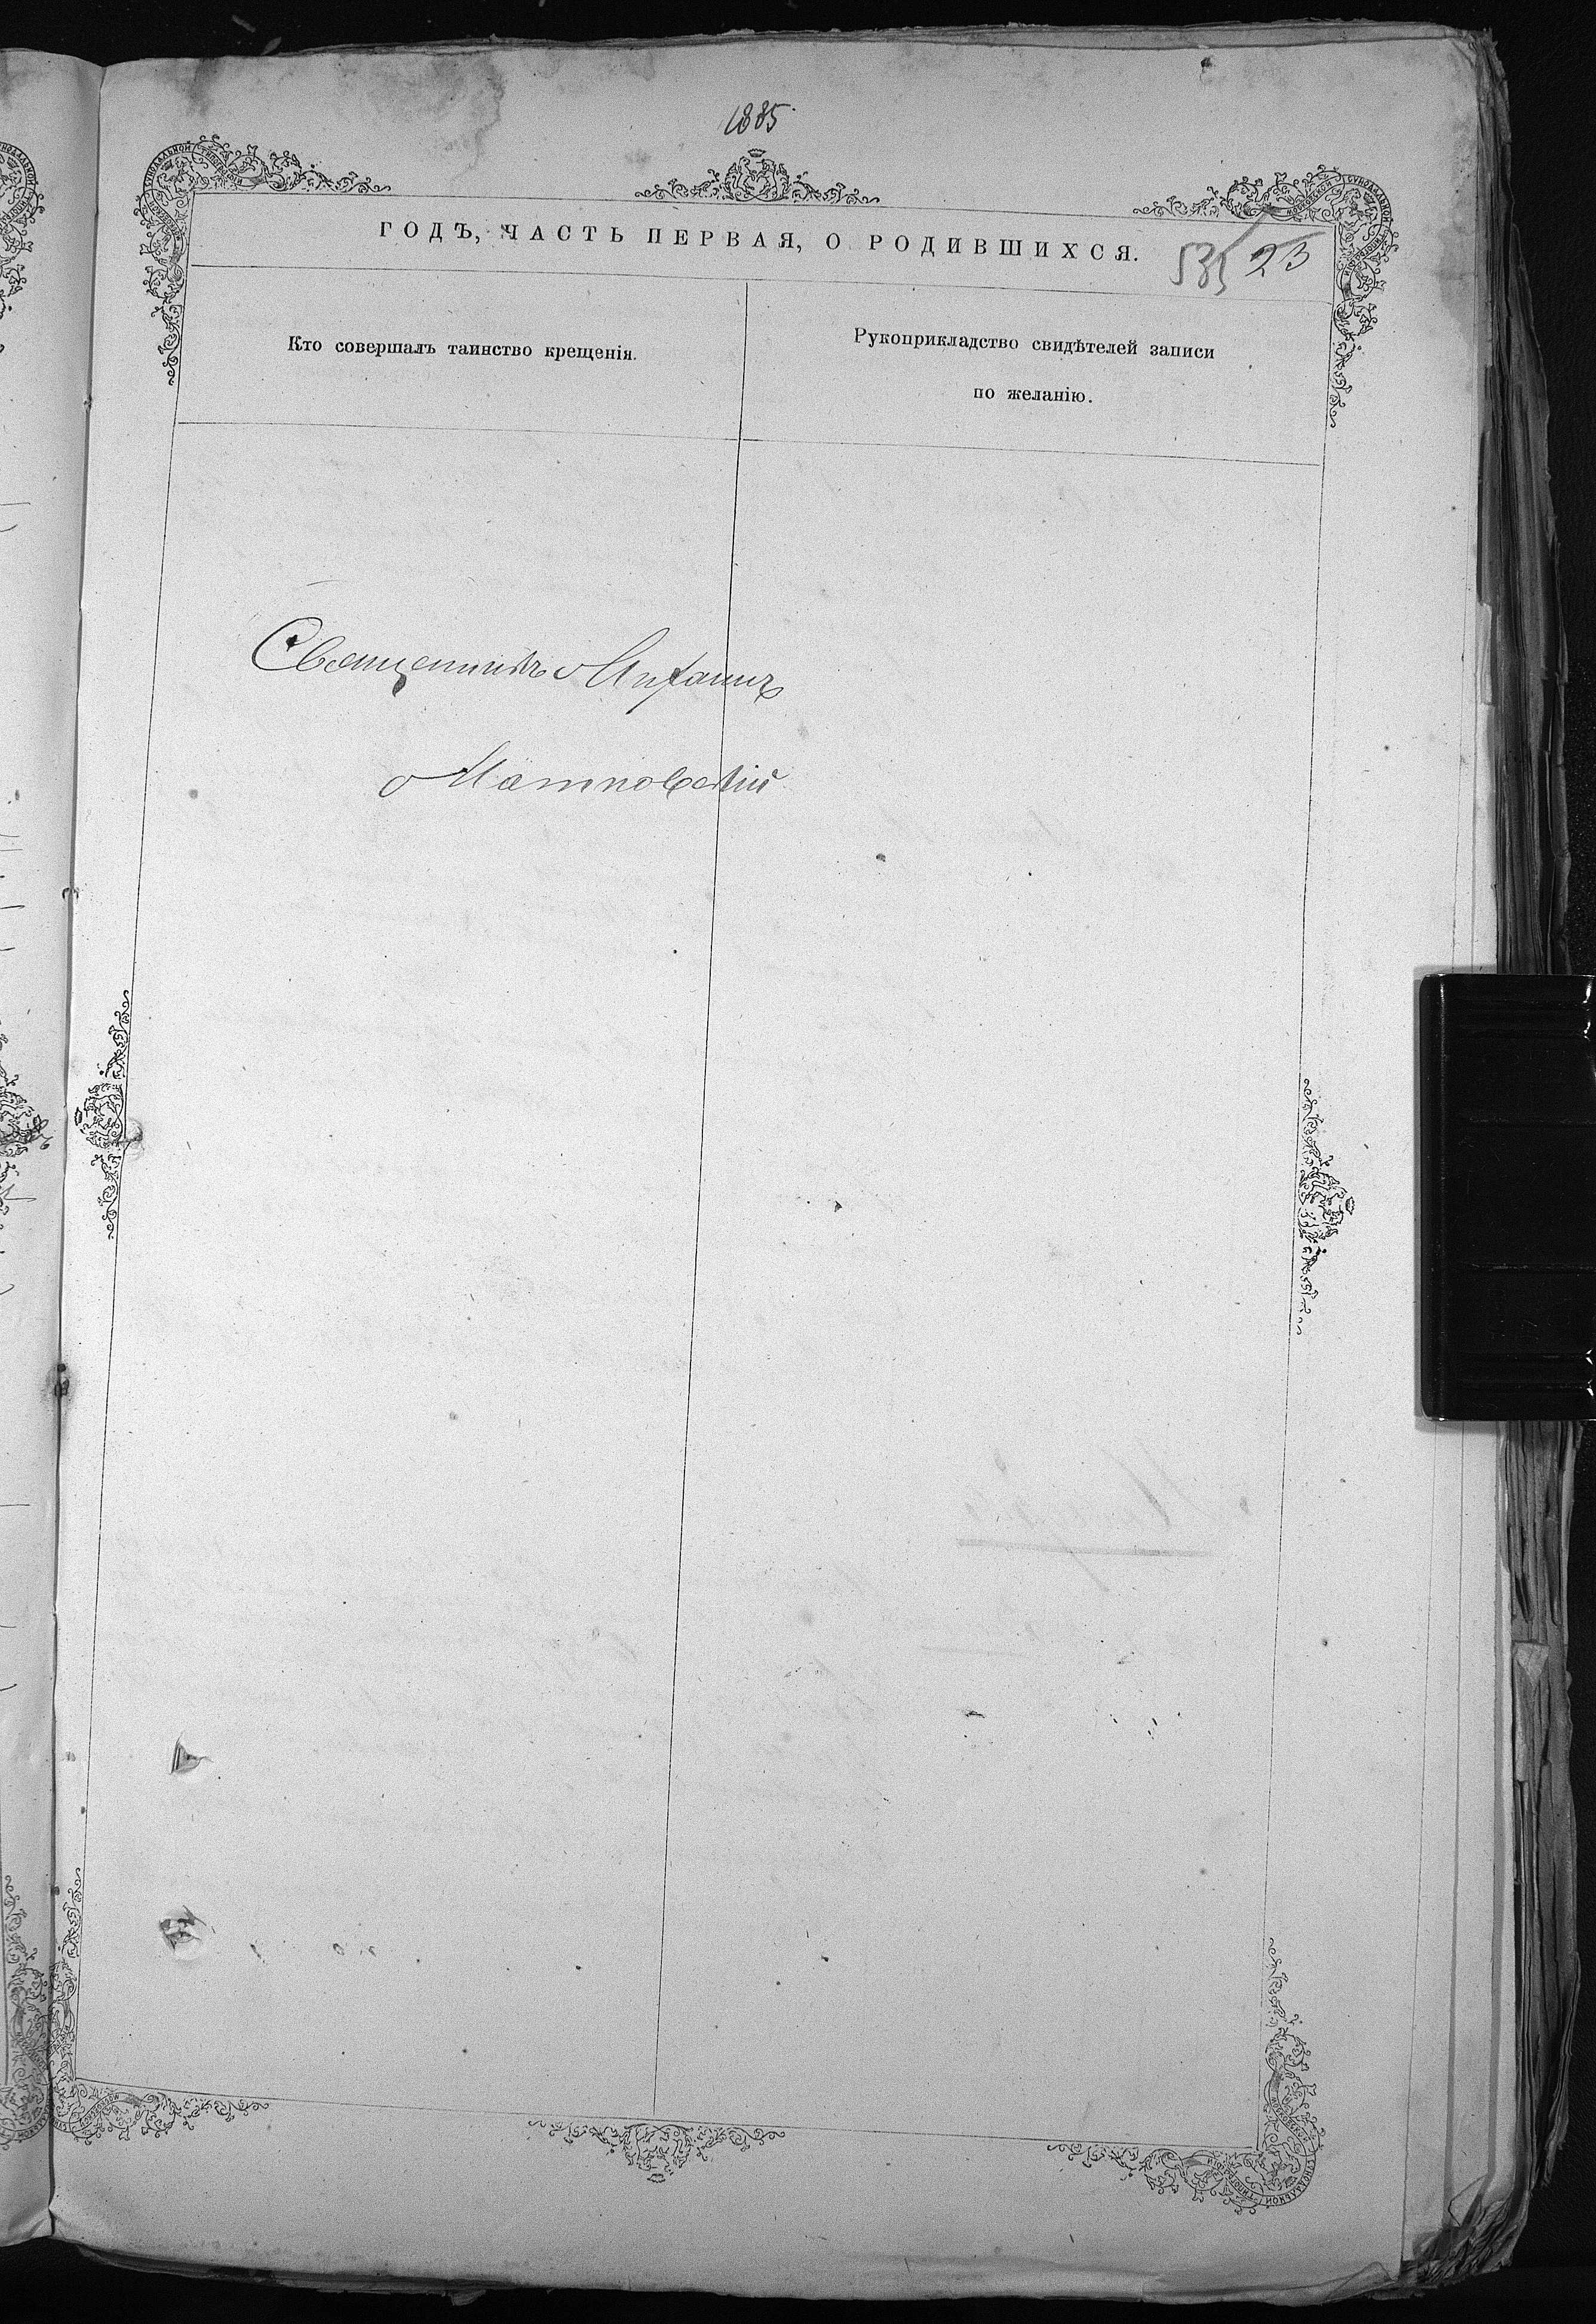 1885
ГОДЪ, ЧАСТЬ ПЕРВАЯ, О РОДИВШИХСЯ.
535 23
Кто совершалъ таинство крещенія.
Рукоприкладство свидѣтелей записи
по желанію.
Священникъ Михаилъ